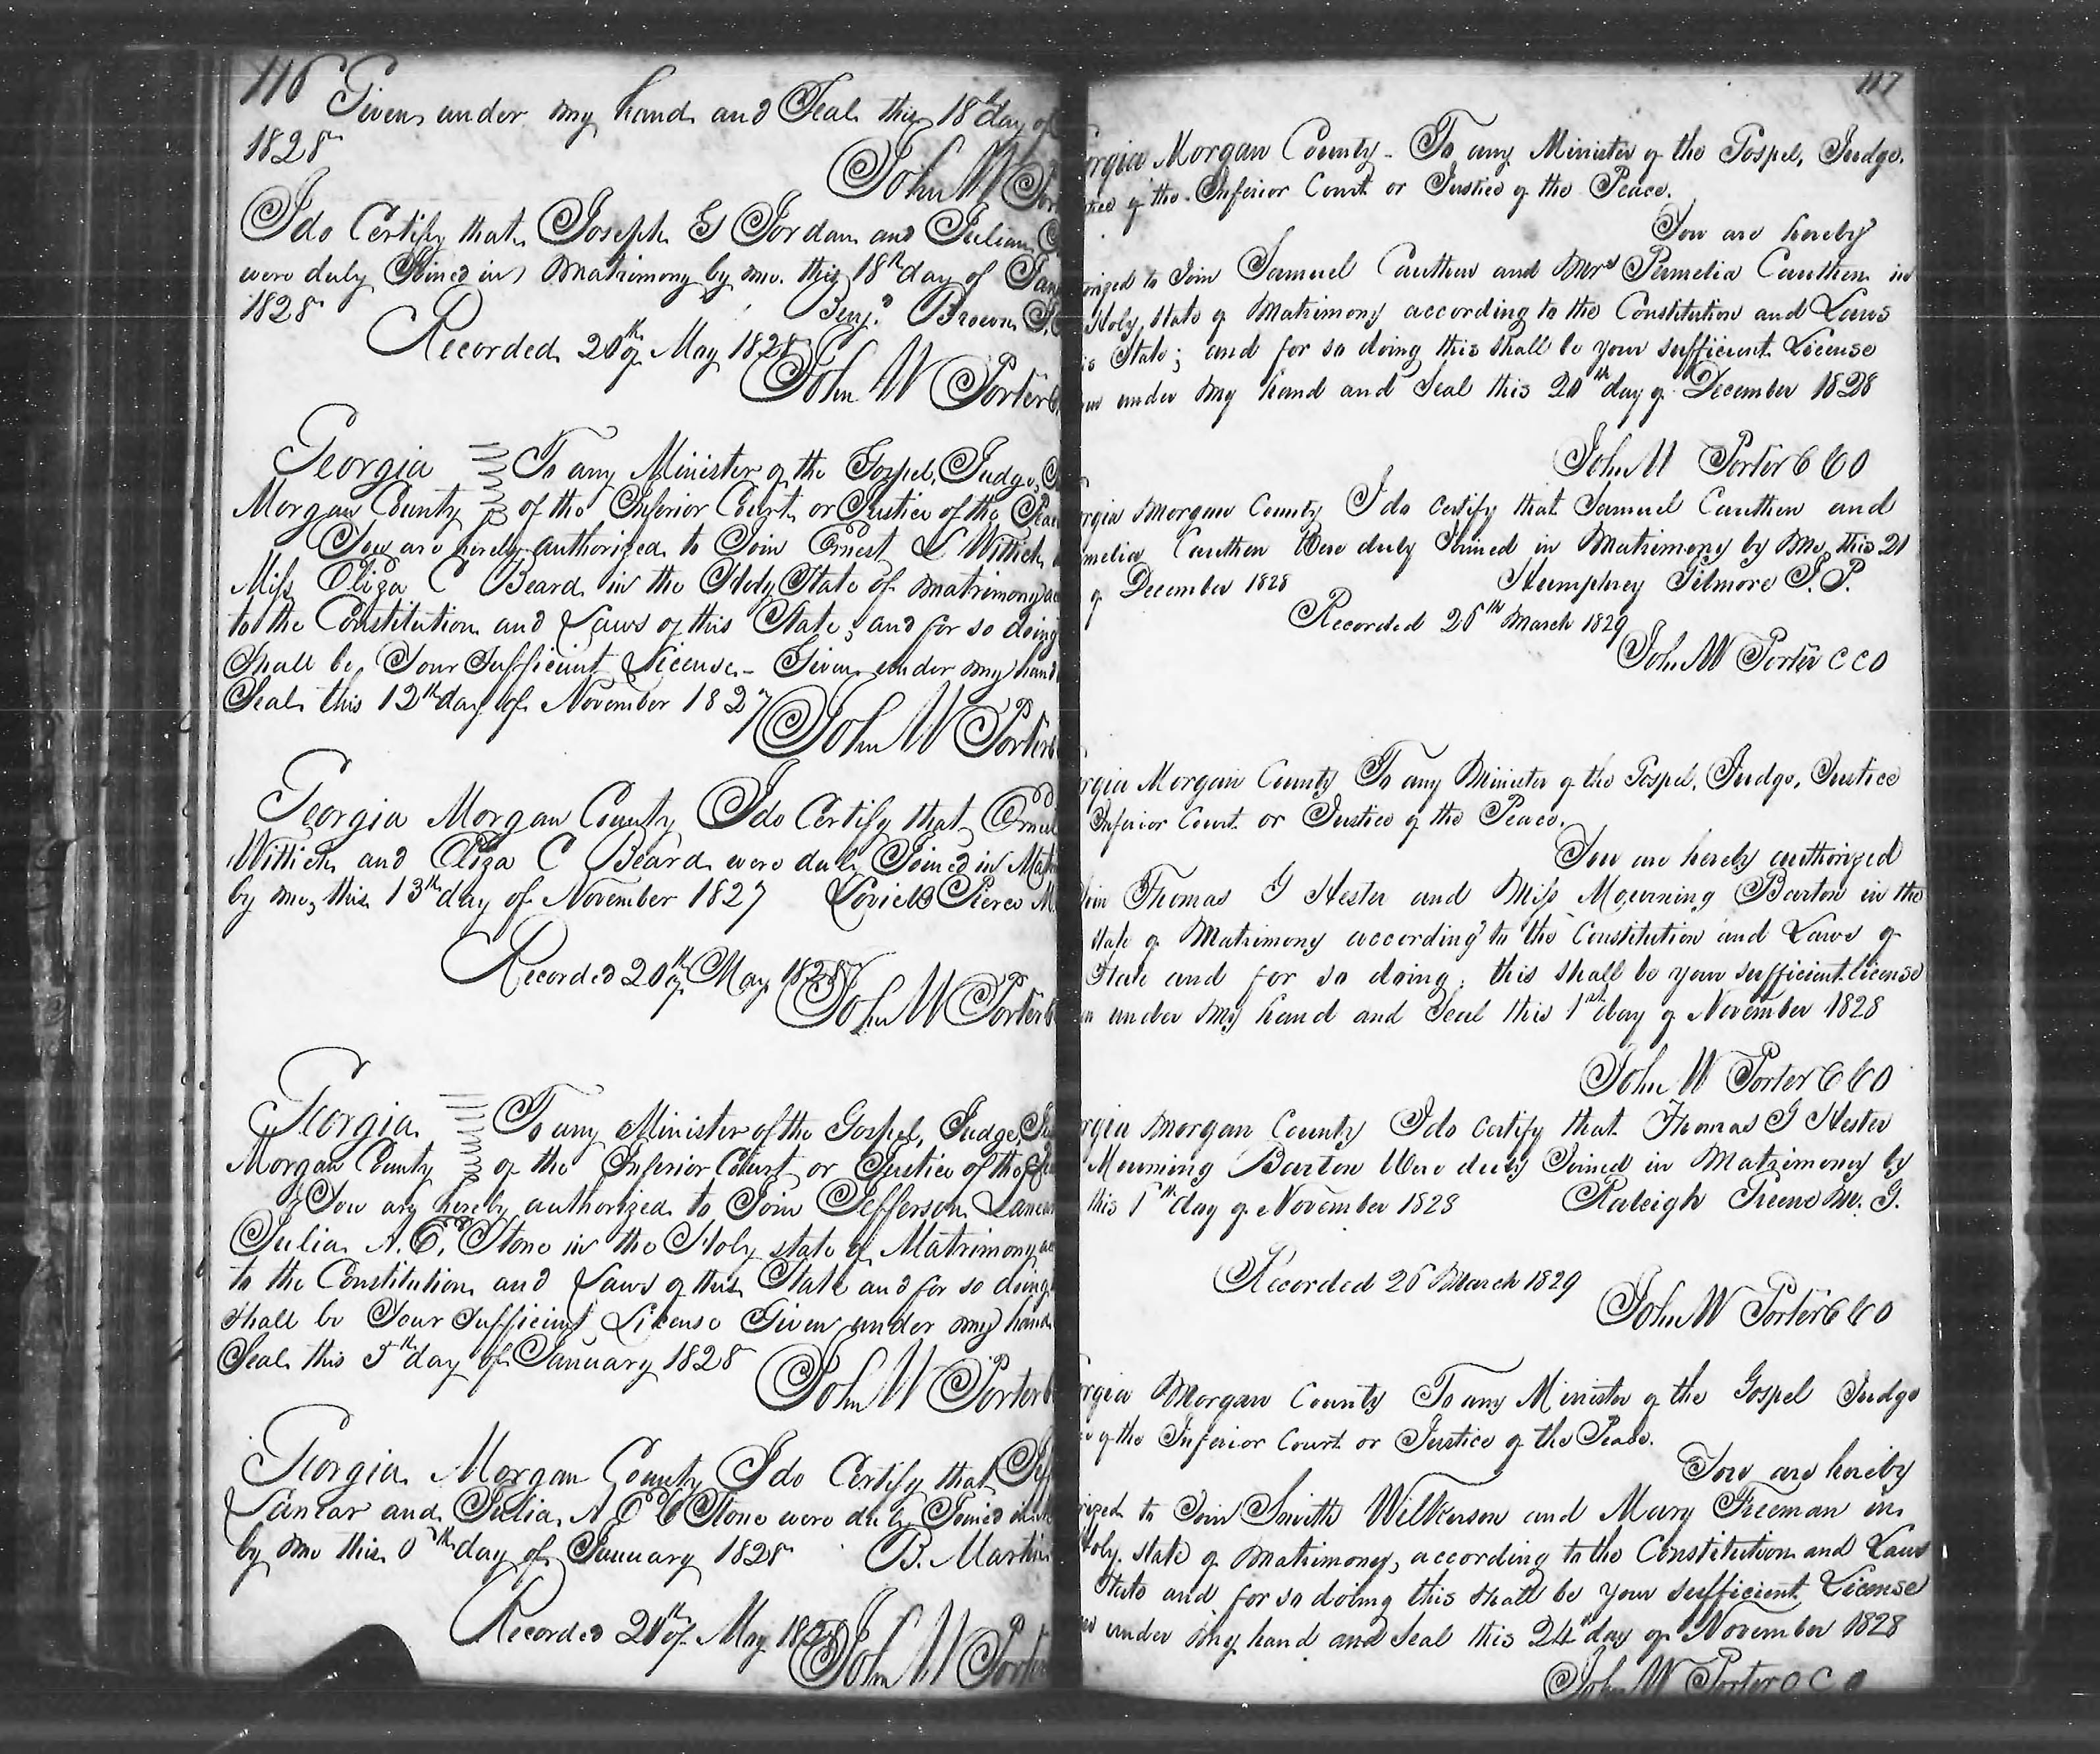 116
Given under my hand and Seal this 18th day of
1828
John W Por
I do Certify that Joseph G Jordan and Julian
were duly Joined in Matrimony by me this 18th day of Jan
1828 Benj. Brown J.
Recorded 20th of May 1828
John W Porter
Georgia To any Minister of the Gospel, Judge, J
Morgan County of the Inferior Court or Justice of the Peace
You are hereby authorized to Join Ernest L Wittich
Miss Eliza C Beard in the Holy State of matrimony ac
to the Constitution and Laws of this State, and for so doing
Shall be Your Sufficient License - Given under my hand
Seal this 12th day of November 1827
John W Porter
Georgia Morgan County I do Certify that Ernest
Wittich and Eliza C Beard were duly Joined in Mat
by me, this 13th day of November 1827 Lovick Pierce M.
Recorded 20th of May 1828
John W Porter
Georgia To any Minister of the Gospel, Judge, Jus
Morgan County of the Inferior Court or Justice of the Pea
You are hereby authorized to Join Jefferson Lamar
Julia A. C. Stone in the Holy state of Matrimony ac
to the Constitution and Laws of this State and for so doing
shall be Your Sufficient License Given under my hand
Seal this 5th day of January 1828
John W Porter
Georgia Morgan County I do Certify that Jeff
Lamar and Julia A C Stone were duly Joined in
by me this day of January 1828 B. Martin
Recorded 20th of May 1828
John W Porter
117
orgia Morgan County - To any Minister of the Gospel, Judge,
tice of the Inferior Court or Justice of the Peace.
You are hereby
orized to Join Samuel Cauthen and Mrs Permelia Cauthen in
Holy state of Matrimony according to the Constitution and Laws
is State; and for so doing this shall be your sufficient License
en under my hand and Seal this 20th day of December 1828
John W Porter C C O
rgia Morgan County I do certify that Samuel Cauthen and
melia Cauthen Were duly Joined in Matrimony by Me this 21
of December 1828 Humphrey Gilmore J. P.
Recorded 26th March 1829
John W Porter C C O
rgia Morgan County To any Minister of the Gospel, Judge, Justice
Inferior Court or Justice of the Peace.
You are hereby authorized
Join Thomas G Hester and Miss Mourning Barton in the
state of Matrimony according to the Constitution and Laws of
State and for so doing, this shall be your sufficient license
n under my hand and Seal this 1st day of November 1828
John W Porter C C O
rgia Morgan County I do certify that Thomas G Hester
Mourning Barton Were duly Joined in Matrimony by
this day of November 1828 Raleigh Greene M. G.
Recorded 26 March 1829
John W Porter C C O
rgia Morgan County To any Minister of the Gospel Judge
of the Inferior Court or Justice of the Peace.
You are hereby
rized to Join Smith Wilkerson and Mary Freeman in
Holy state of Matrimony, according to the Constitution and Laws
State and for so doing this shall be your sufficient License
under my hand and Seal this 24th day of November 1828
John W Porter C C O